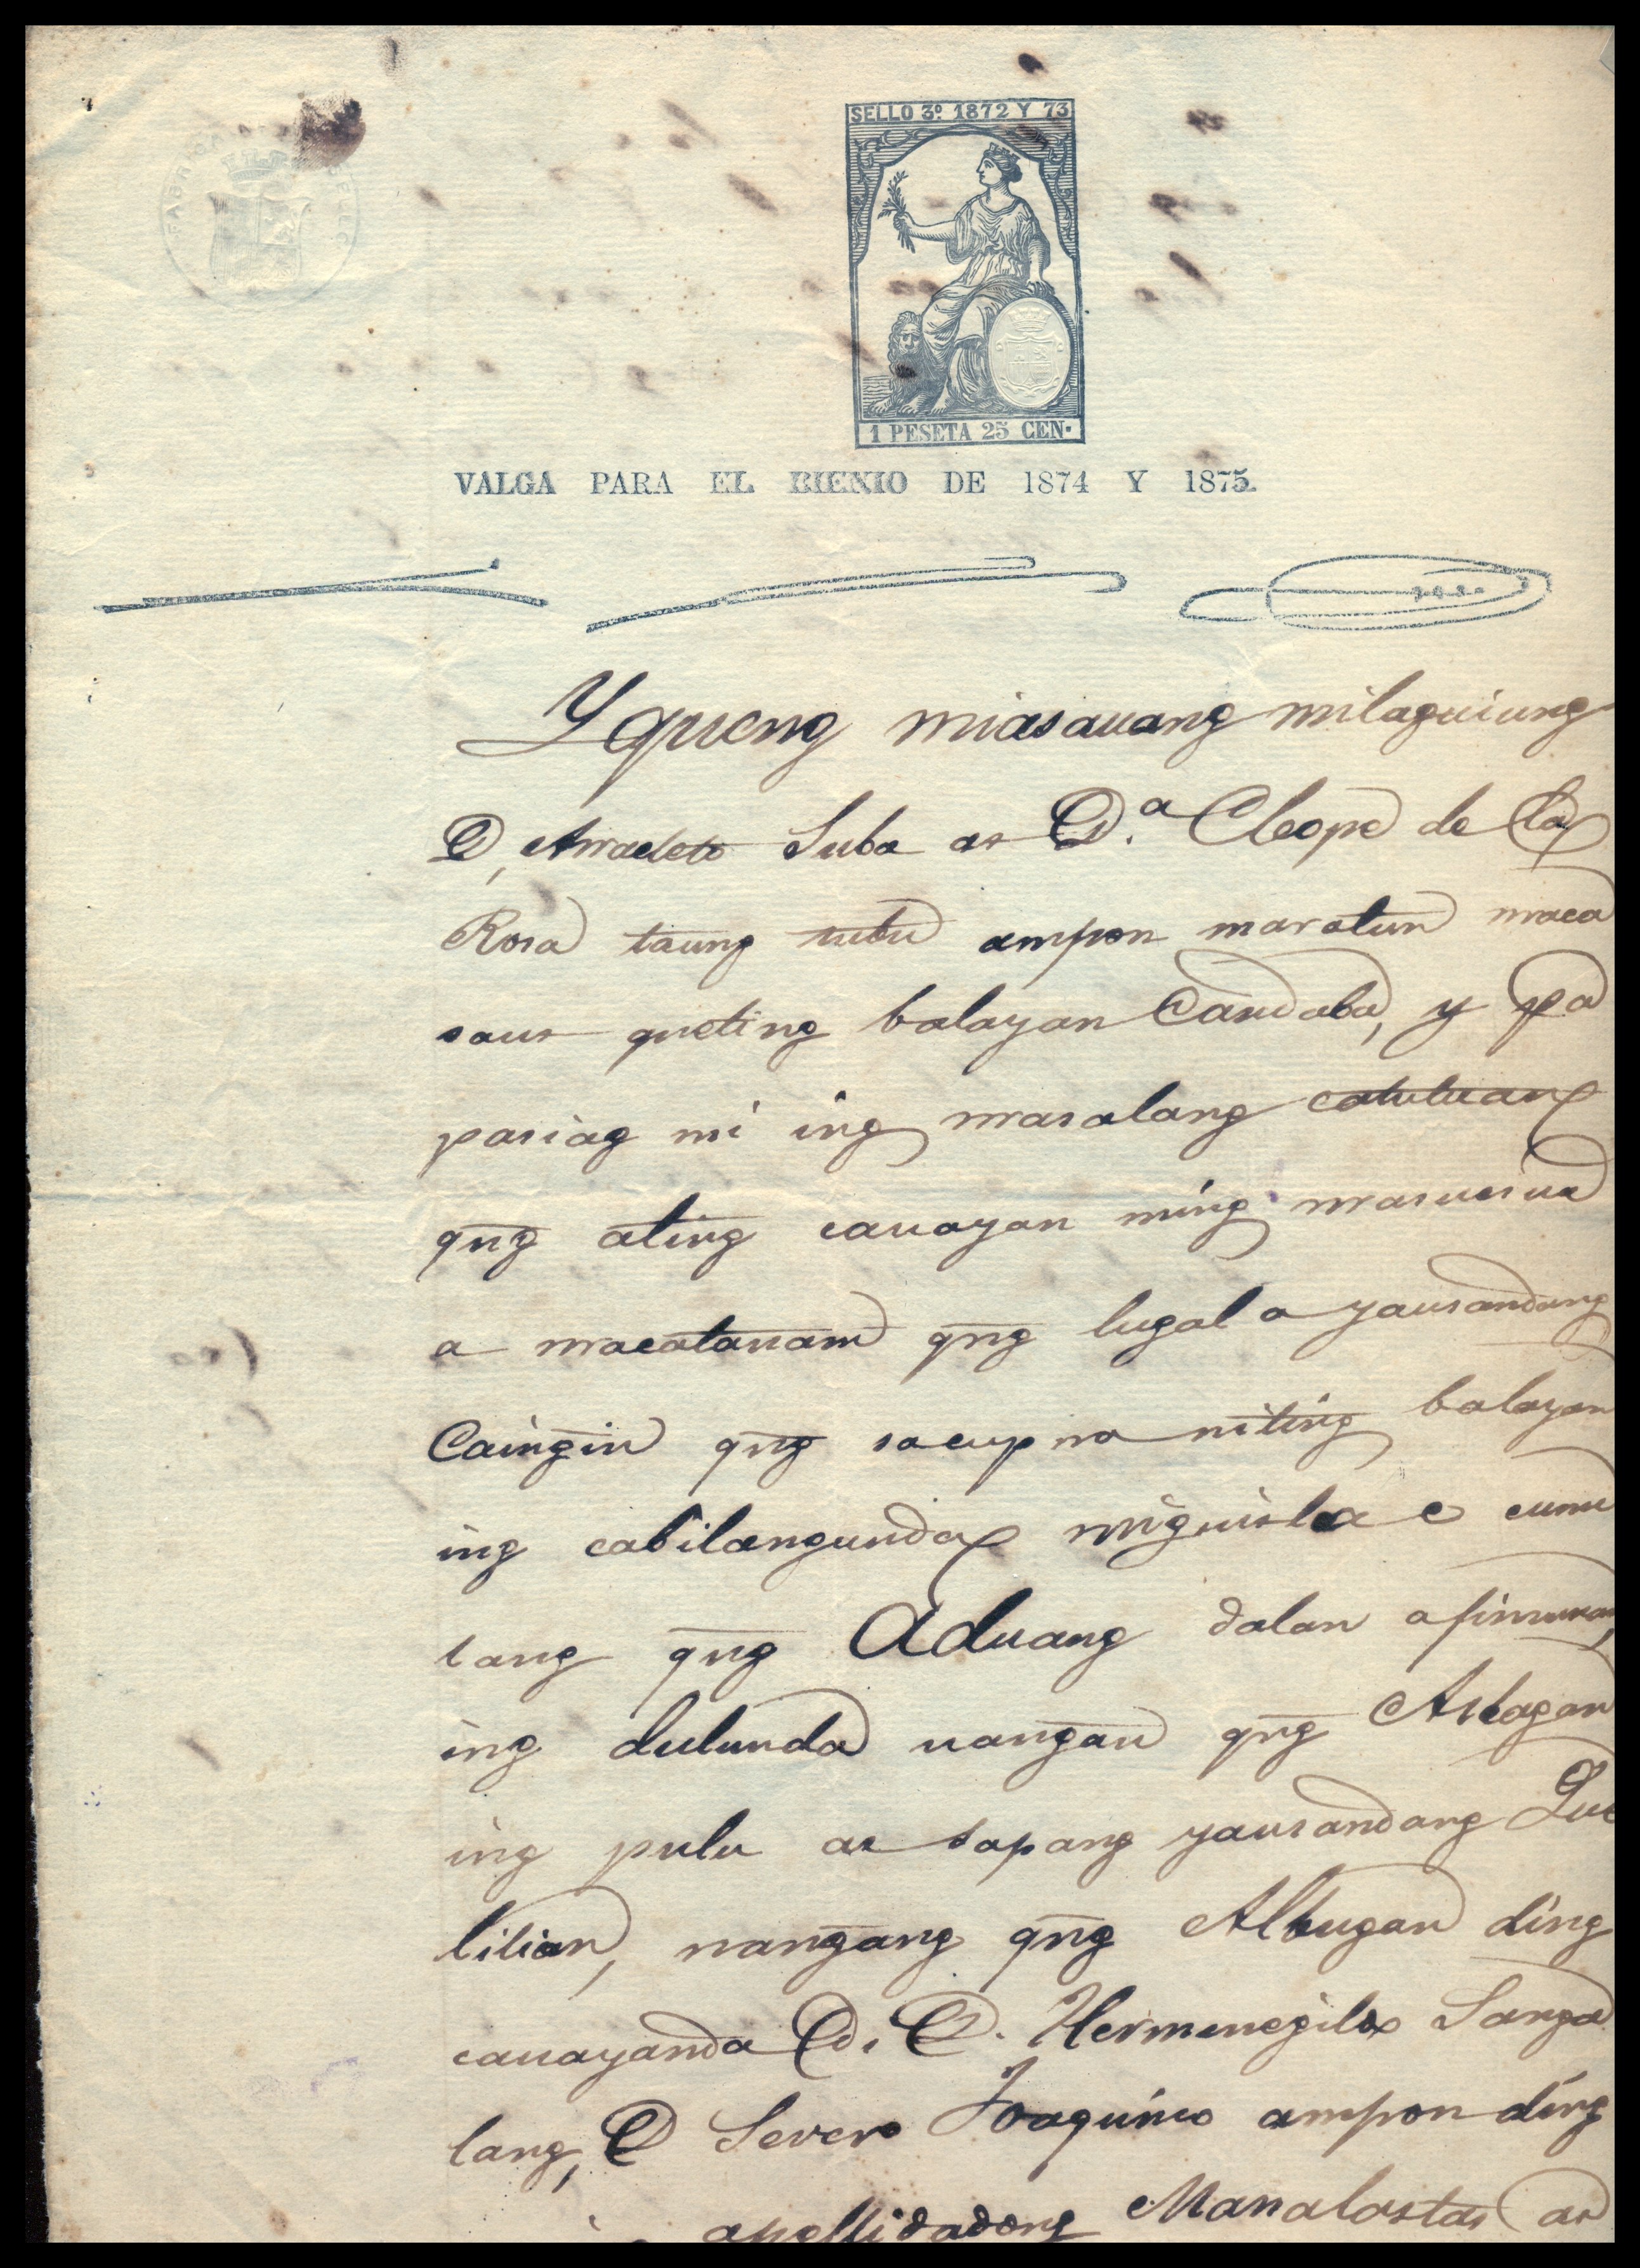 FABRICA DEL SELLO
SELLO 3º. 1872 Y 73
1 PESETA 25 CEN.
VALGA PARA EL BIENIO DE 1874 Y 1875.
Yqueng miasauang milaguiung
D, Anacleto Suba as D.ª Cleope de la
Rosa taung tubu ampon maratun maca
saus queting balayan Candaba, y pa
pasiag mi ing masalang catutuan
qng̃ ating cauayan ming masuasua
a macatanam qng̃ lugal a yausandang
Caingin qng̃ sacup na niting balayan
ing cabilangunda miguisla e cumu
lang qng̃ Aduang dalan a
ing dulunda nangan qng̃ Aslagan
ing pulu as sapang yausandang Que
lilian, nangang qng̃ Albugan ding
cauayanda Di, D. Hermenegildo Sanga
lang, D Severo Joaquino ampon ding
apellidadong Manalastas as